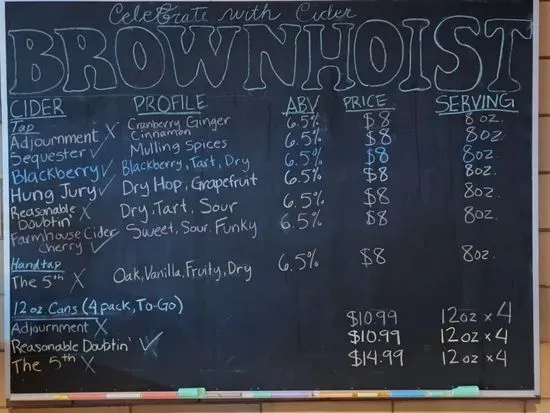 Celebrate with Cider
BROWNHOIST
CIDER PROFILE ABV PRICE SERVING
Tap
Adjournment X Cranberry Ginger Cinnamon 6.5% $8 8oz.
Sequester ✓ Mulling Spices 6.5% $8 8oz.
Blackberry ✓ Blackberry, Tart, Dry 6.5% $8 8oz.
Hung Jury ✓ Dry Hop, Grapefruit 6.5% $8 8oz.
Reasonable Doubtin' X Dry, Tart, Sour 6.5% $8 8oz.
Farmhouse Cider Cherry ✓ Sweet, Sour, Funky 6.5% $8 8oz.
Handtap
The 5th X Oak, Vanilla, Fruity, Dry 6.5% $8 8oz.
12 oz Cans (4 pack, To-Go)
Adjournment X $10.99 12oz x 4
Reasonable Doubtin' ✓ $10.99 12oz x 4
The 5th X $14.99 12oz x 4